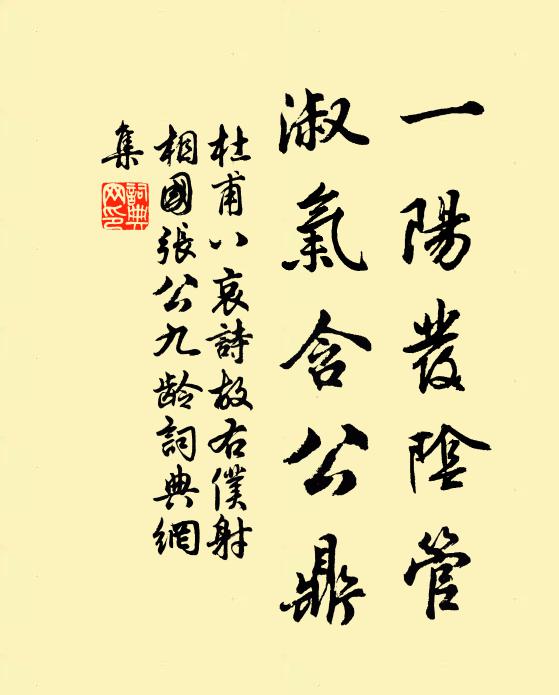 一陽發陰管
淑氣含公鼎
杜甫八哀詩故右僕射
相國張公九齡詞典網
集
詞典
网印